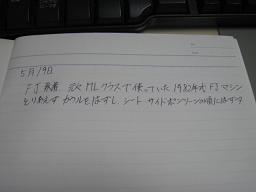 5月19日
FJ 到着 元々 MLクラスで使っていた 1982年式 FJマシン
とりあえず カウルをはずし、シート サイドポンツーンの順にはずす